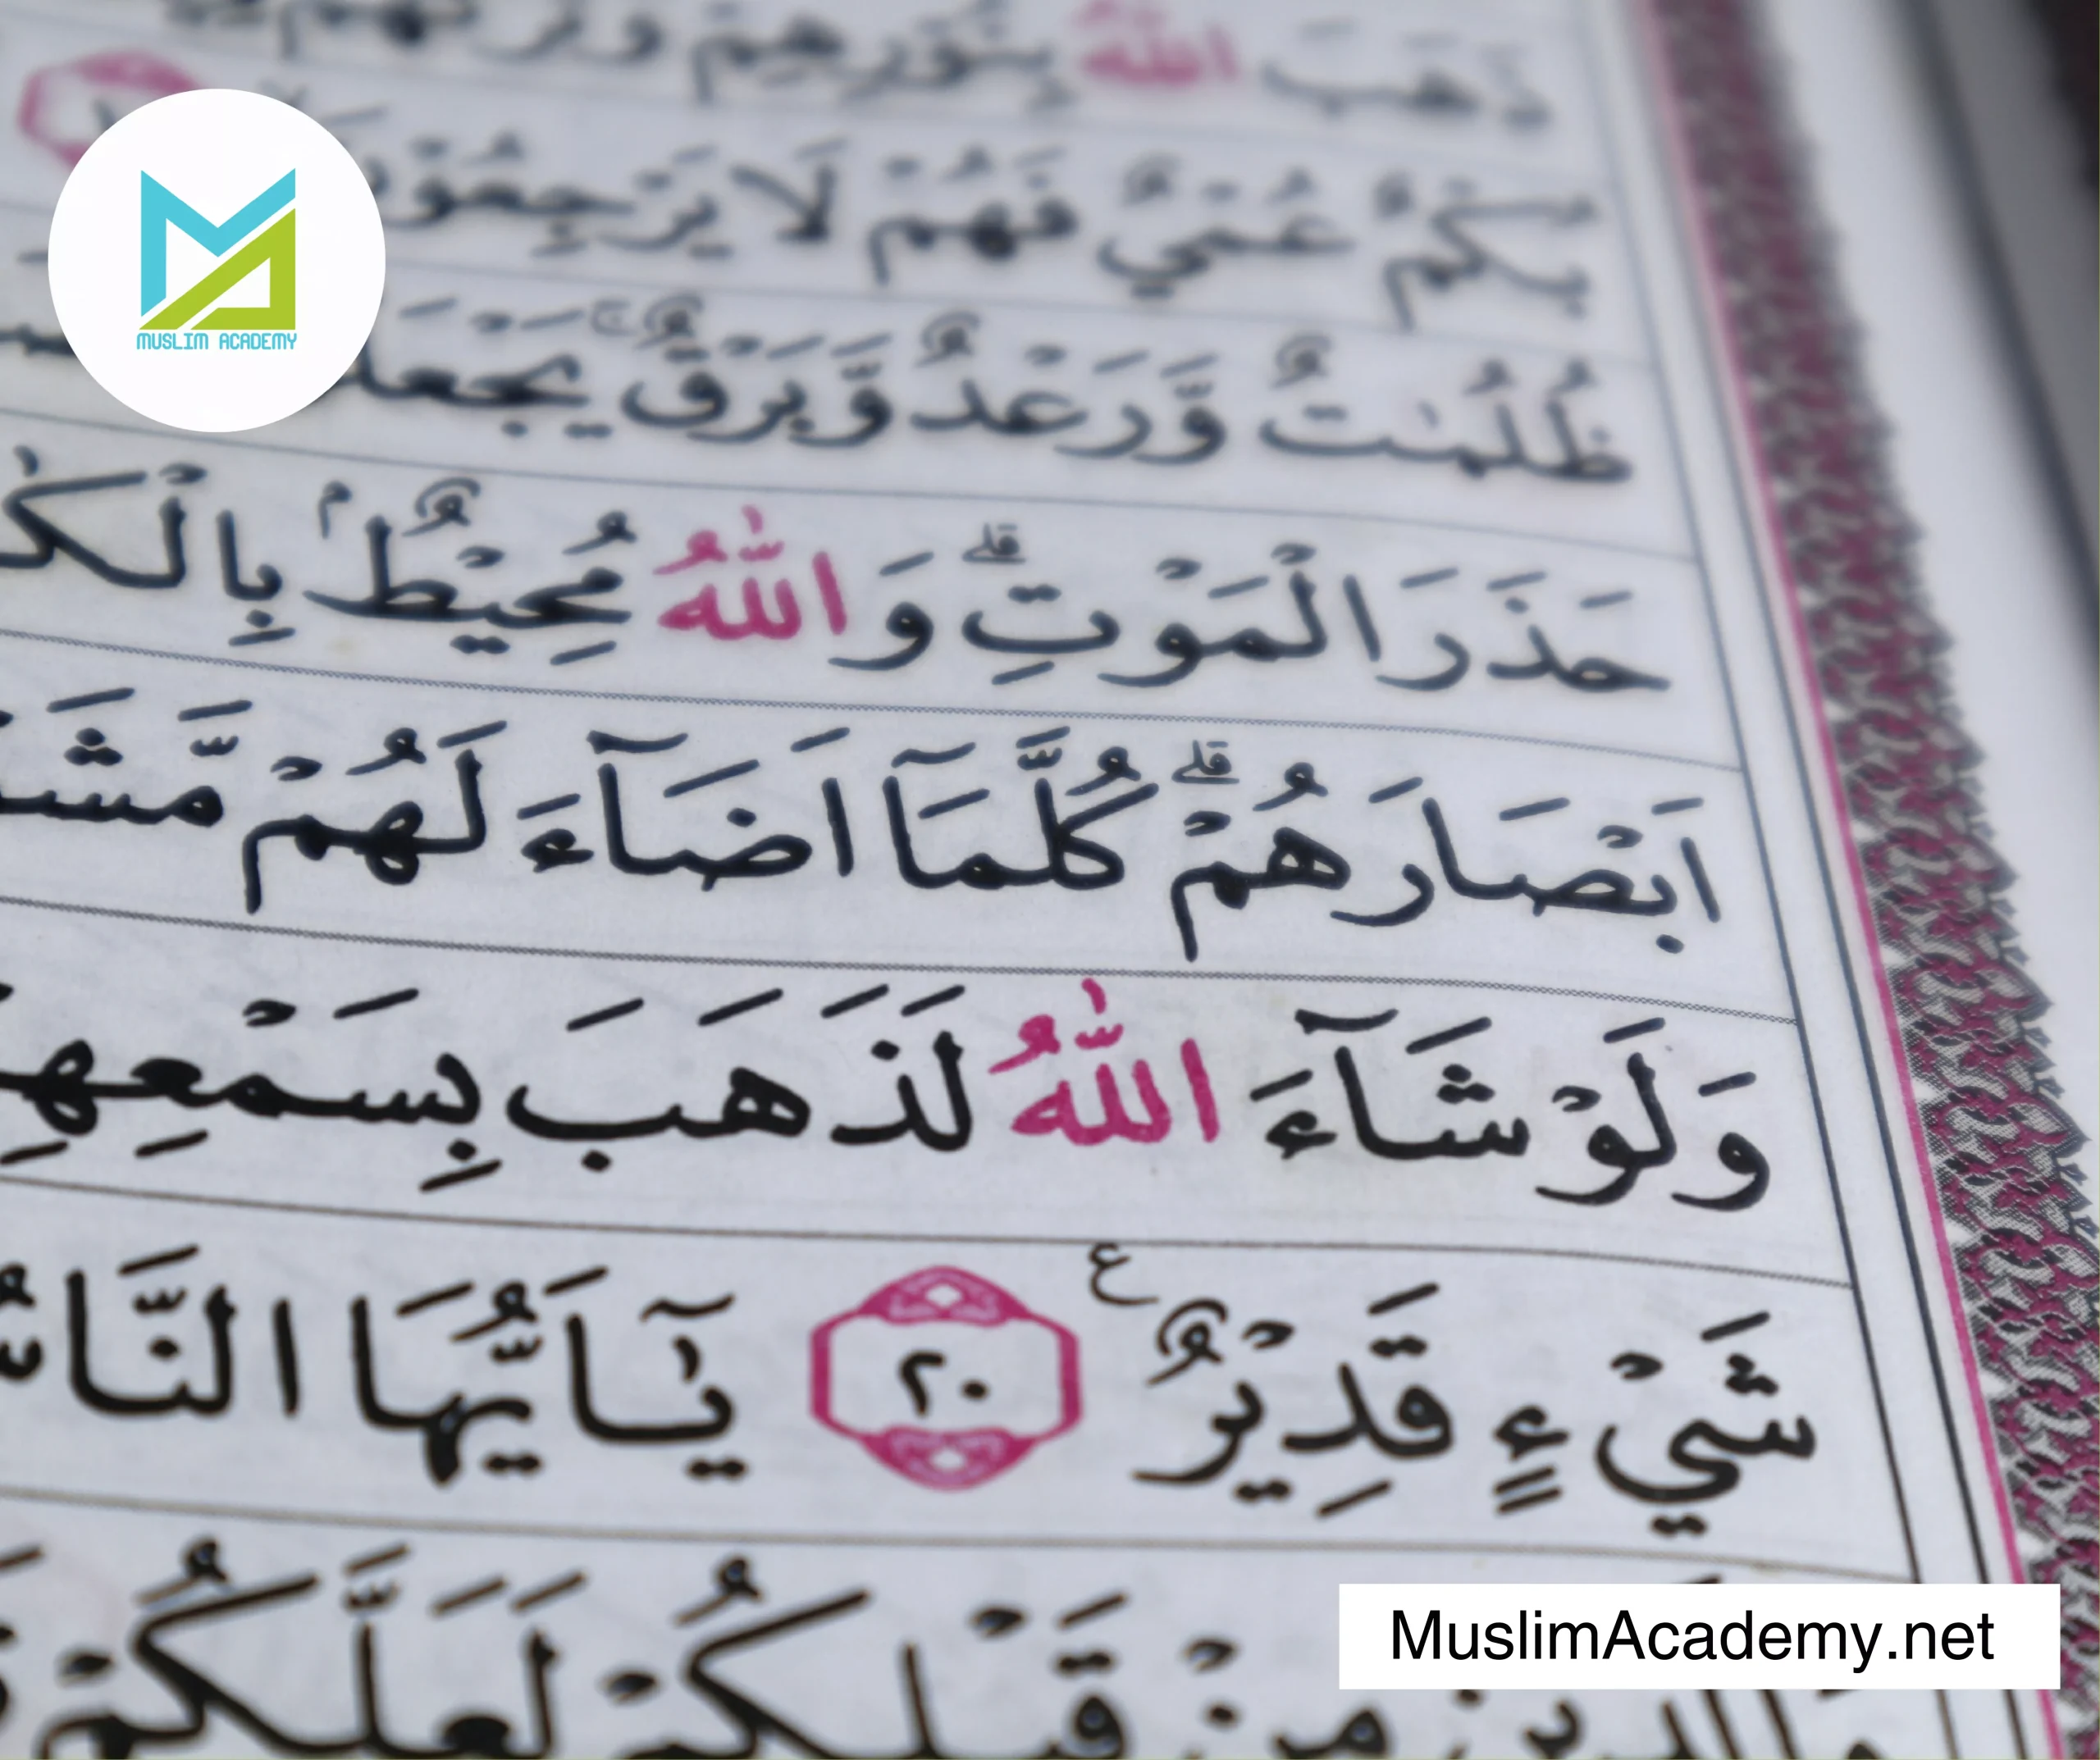 ذَهَبَ اللّٰهُ بِنُوْرِهِمْ
بُكْمٌ عُمْيٌ فَهُمْ لَا يَرْجِعُوْنَ
MUSLIM ACADEMY
ظُلُمٰتٌ وَّرَعْدٌ وَّبَرْقٌ ۚ يَجْعَلُ
حَذَرَ الْمَوْتِ ؕ وَاللّٰهُ مُحِيْطٌۢ
اَبْصَارَهُمْ ؕ كُلَّمَاۤ اَضَآءَ لَهُمْ
وَلَوْ شَآءَ اللّٰهُ لَذَهَبَ
شَيْءٍ قَدِيْرٌ ع ٢٠ يٰۤاَيُّهَا النَّاسُ
مِنْ قَبْلِكُمْ لَعَلَّكُمْ
MuslimAcademy.net